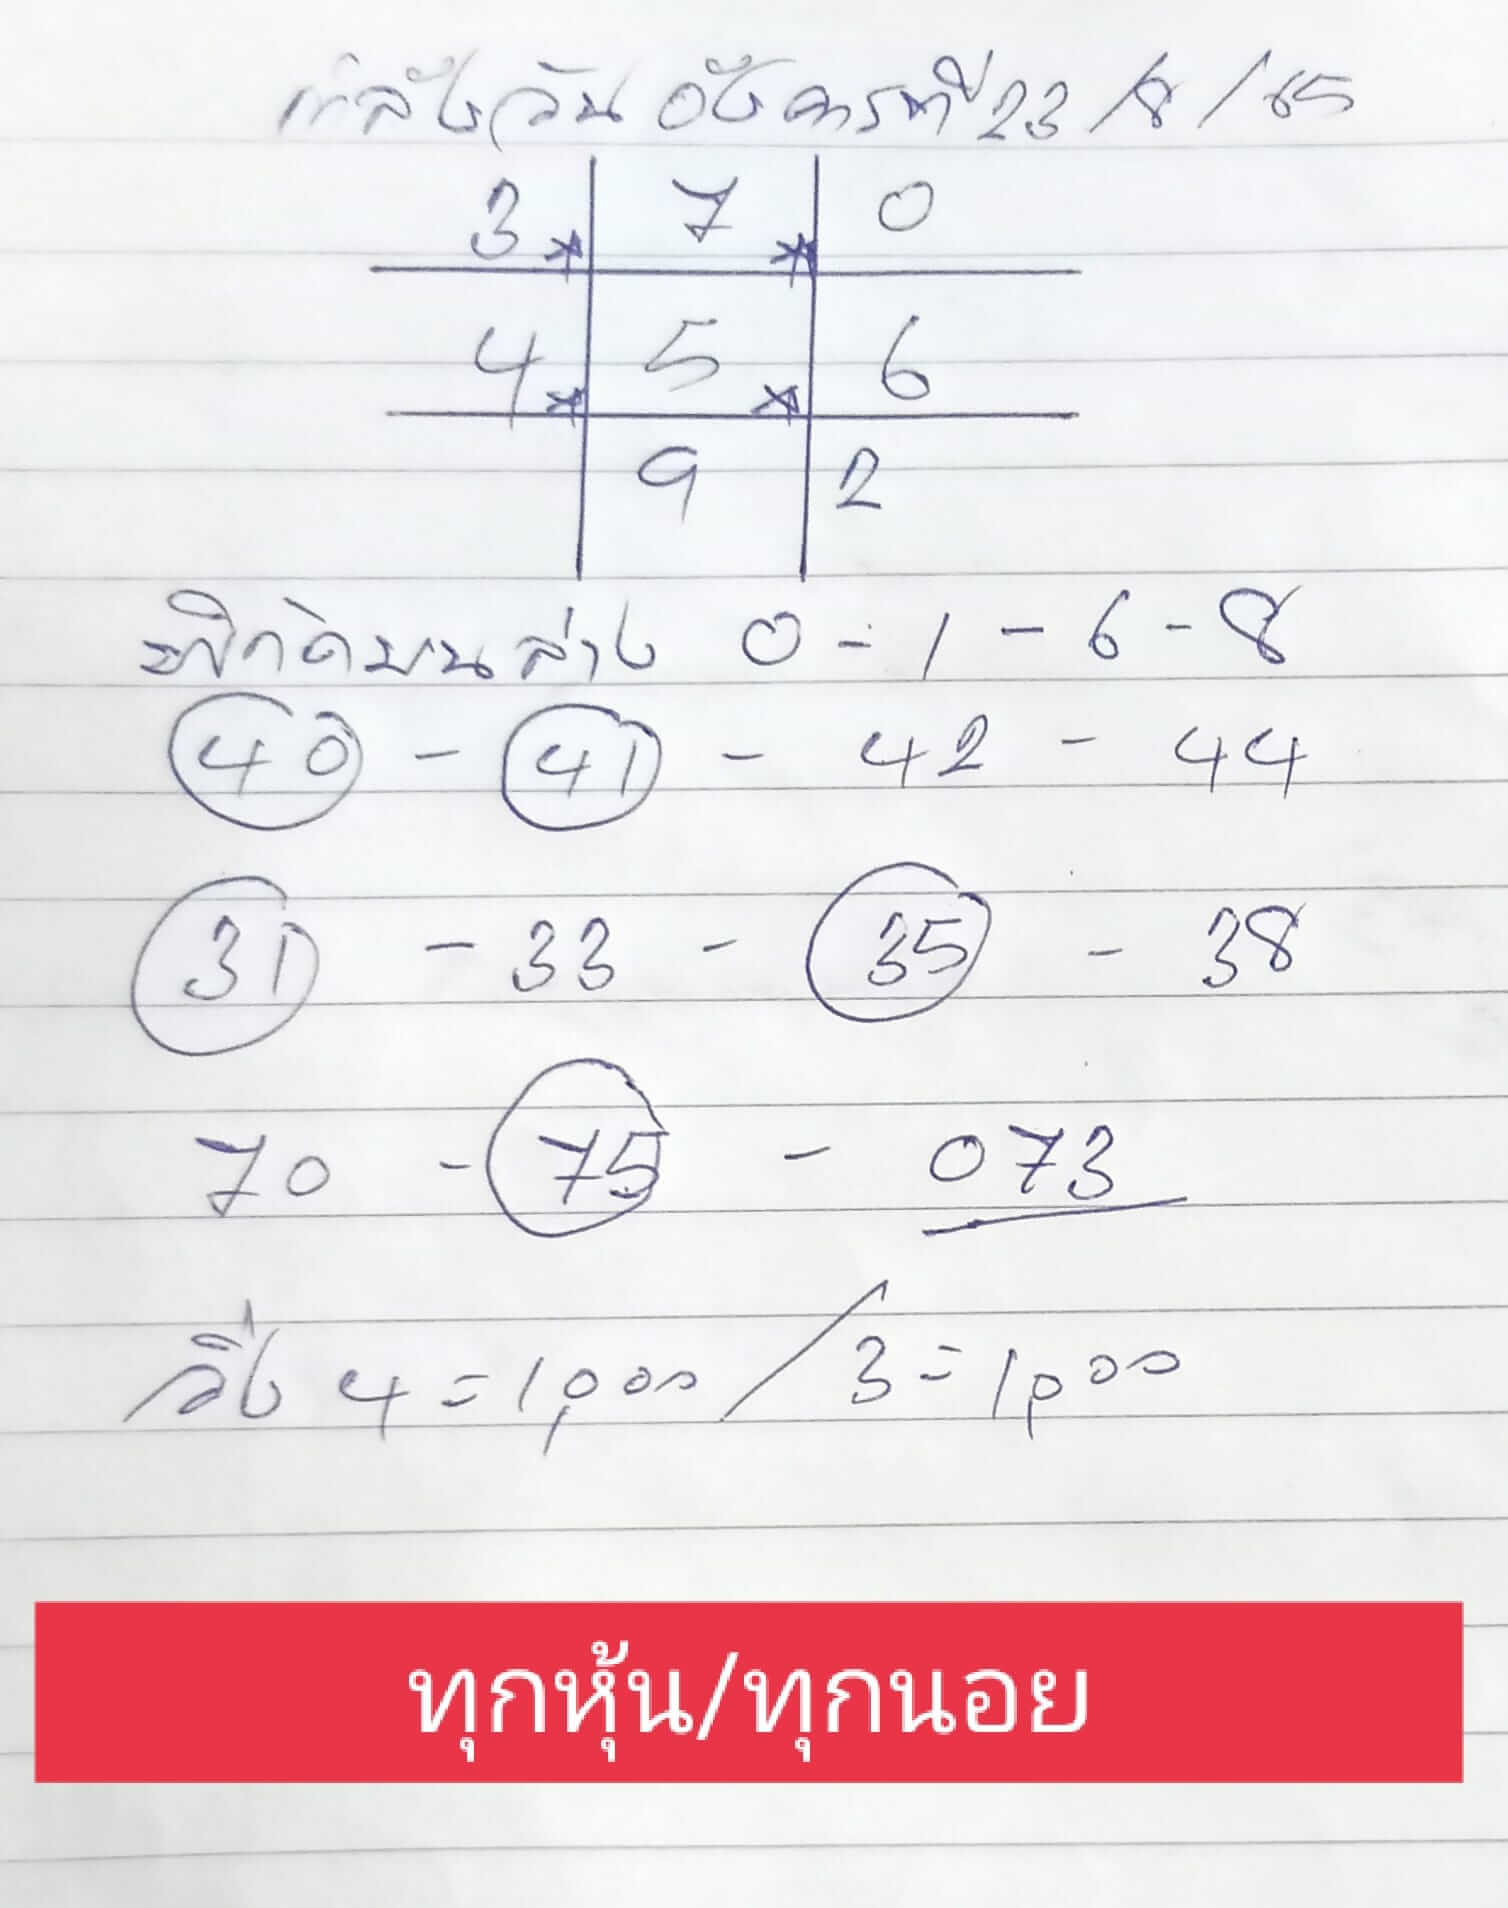 กำลังวันอังคารที่ 23/8/65
3 * 7 * 0
4 * 5 * 6
9 2
พิกัดบนล่าง 0 - 1 - 6 - 8
40 - 41 - 42 - 44
31 - 33 - 35 - 38
70 - 75 - 073
วิ่ง 4 = 1,000 / 3 = 1,000
ทุกหุ้น/ทุกนอย